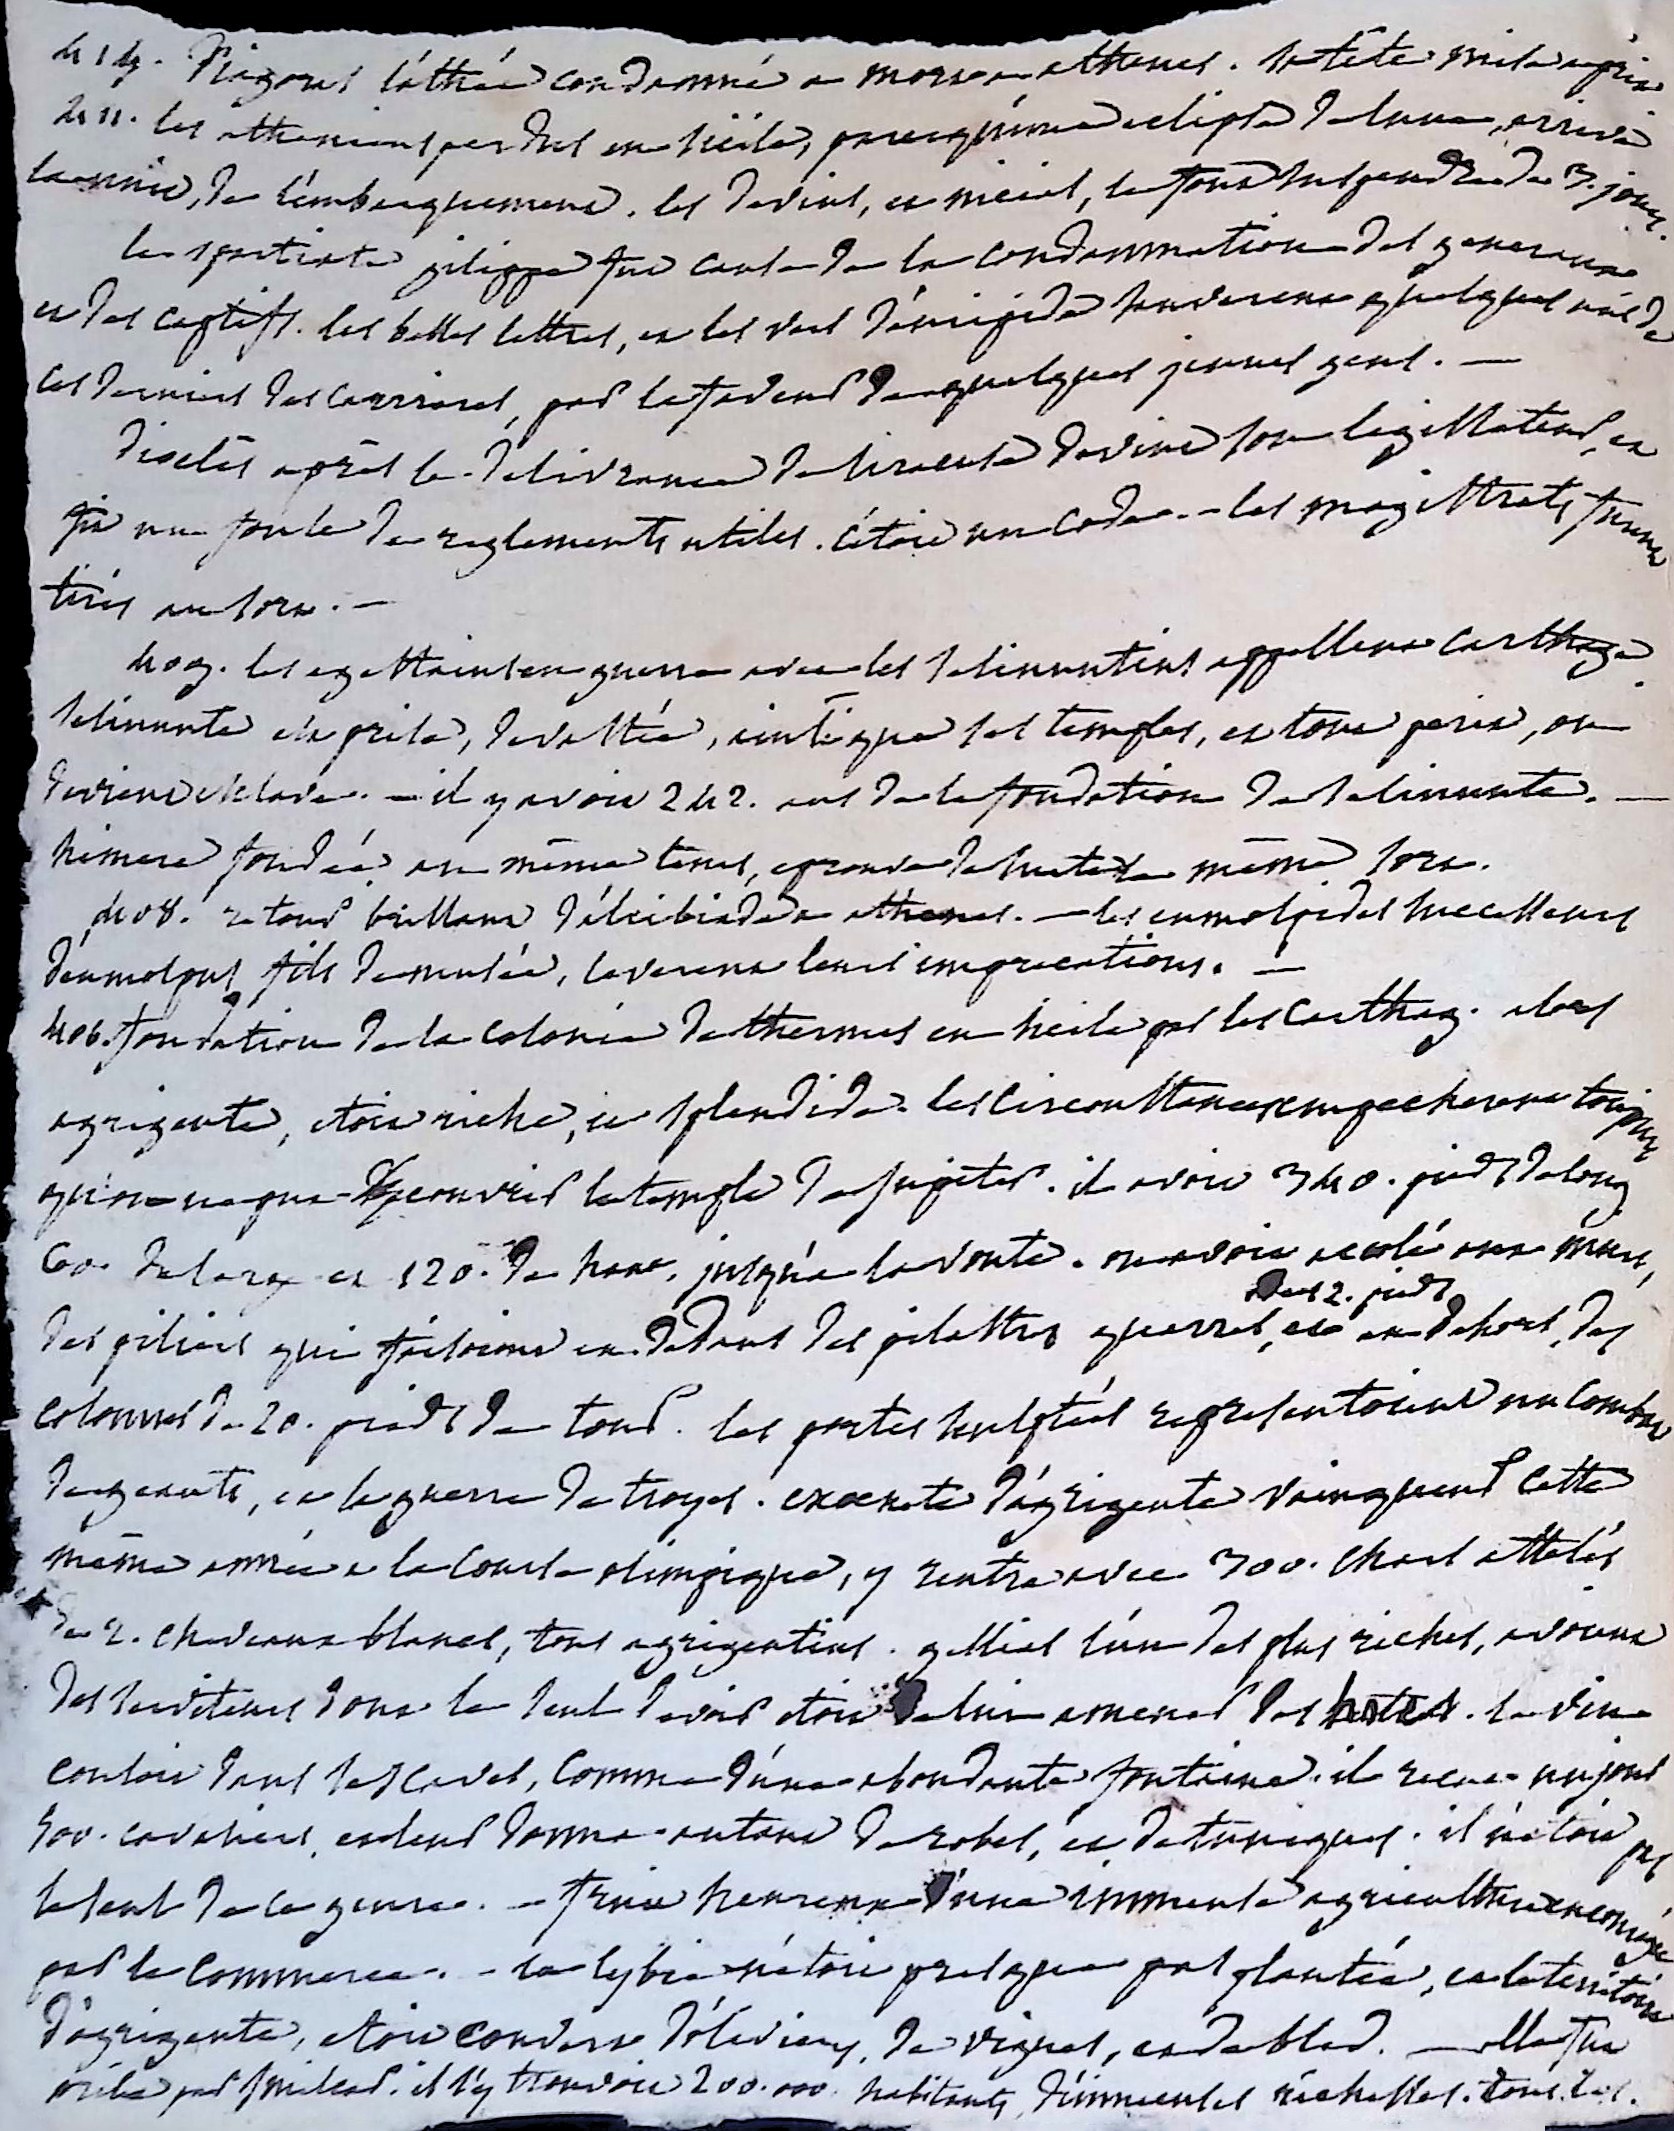 414. Diagoras l'athée condamné a mort a athenes. sa tête mise a prix
411. les atheniens perdus en sicile, parcequ'une eclipse de lune, arrivée
la nuit, de l'embarquement. les devins, et nicias, le font suspendre de 3. jours.
le spartiate gilippe fut cause de la condamnation des generaux
et des captifs. les belles lettres, et les vers d'euripide sauverent quelques uns de
ces derniers des carrieres, par la faveur de quelques jeunes gens. —
dioclès après la delivrance de siracuse devint son legislateur, et
fit une foule de reglements utiles. c'étoit un code. - les magistrats furent
tirés au sort. —
409. les egestains en guerre avec les selinuntins appellent carthage.
selinunte est prise, devastée, ainsi que ses temples, et tout perit, ou
devient esclave. - il y avoit 242. ans de la fondation de selinunte. —
himere fondée en même tems, eprouve de suite le même sort.
408. retour brillant d'alcibiade a athenes. — les eumolpides successeurs
d'eumolpus fils de musée, leverent leurs imprecations. —
406. fondation de la colonie de thermes en sicile par les carthag. alors
agrigente, etoit riche, et splendide. les circonstances empecherent toujours
qu'on ne put recouvrir le temple de jupiter. il avoit 340. pieds de long
60. de large et 120. de haut, jusqu'a la voute. on avoit accolé aux murs,
des piliers qui faisoient en dedans des pilastres quarrés, de 12. pieds et en dehors, des
colonnes de 20. pieds de tour. les portes sculptées representoient un combat
de geants, et la guerre de troyes. exaenete d'agrigente vainqueur cette
même année a la course olimpique, y rentra avec 300. chars attelés
de 2. chevaux blancs, tous agrigentins. gellias l'un des plus riches, avoit
des serviteurs dont le seul devoir etoit de lui amener des hotes. le vin
couloit dans ses caves, comme d'une abondante fontaine. il recut un jour
500. cavaliers, et leur donna autant de robes, et de tuniques. il n'etoit pas
le seul de ce genre. - fruit heureux d'une immense agriculture encouragée
par le commerce. - la lybie n'étoit presque pas plantée, et le territoire
d'agrigente, etoit couvert d'oliviers, de vignes, et de bled. — elle fut
prise par imilcar. il s'y trouvoit 200.000. habitants, d'immenses richesses. tous les.